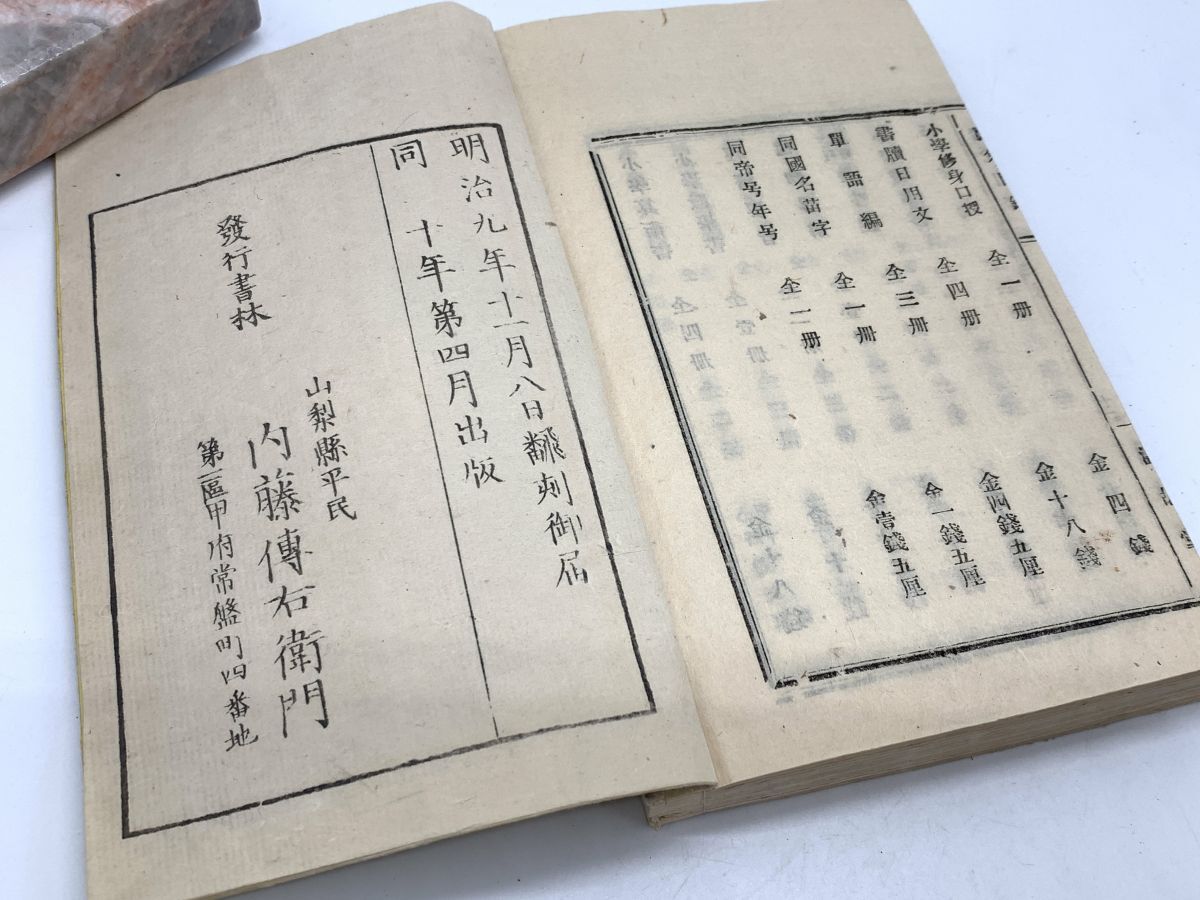 小學修身口授 全一册 金四錢
書牘日用文 全四册 金十八錢
單語編 全三册 金四錢五厘
同國名苗字 全一册 金一錢五厘
同帝号年号 全二册 金壹錢五厘
明治九年十一月八日翻刻御届
同 十年第四月出版
發行書林
山梨縣平民
内藤傳右衛門
第一區甲府常盤町四番地